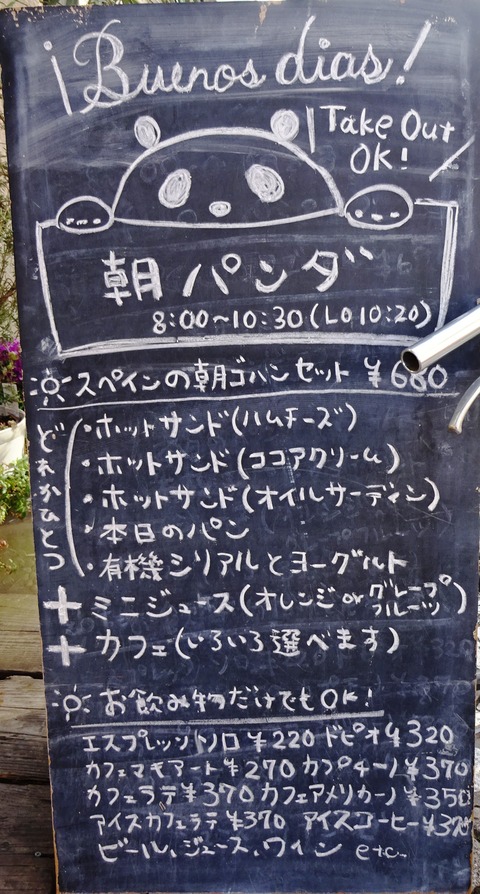 ¡Buenos dias!
Take Out
OK!
朝パンダ
8:00~10:30(LO 10:20)
スペインの朝ゴパンセット ¥680
どれかひとつ
・ホットサンド(ハムチーズ)
・ホットサンド(ココアクリーム)
・ホットサンド(オイルサーディン)
・本日のパン
・有機シリアルとヨーグルト
+ミニジュース(オレンジorグレープフルーツ)
+カフェ(いろいろ選べます)
お飲み物だけでもOK!
エスプレッソソロ ¥220 ドピオ¥320
カフェマキアート¥270 カプチーノ¥370
カフェラテ¥370 カフェアメリカーノ¥350
アイスカフェラテ¥370 アイスコーヒー
ビール、ジュース、ワイン etc.